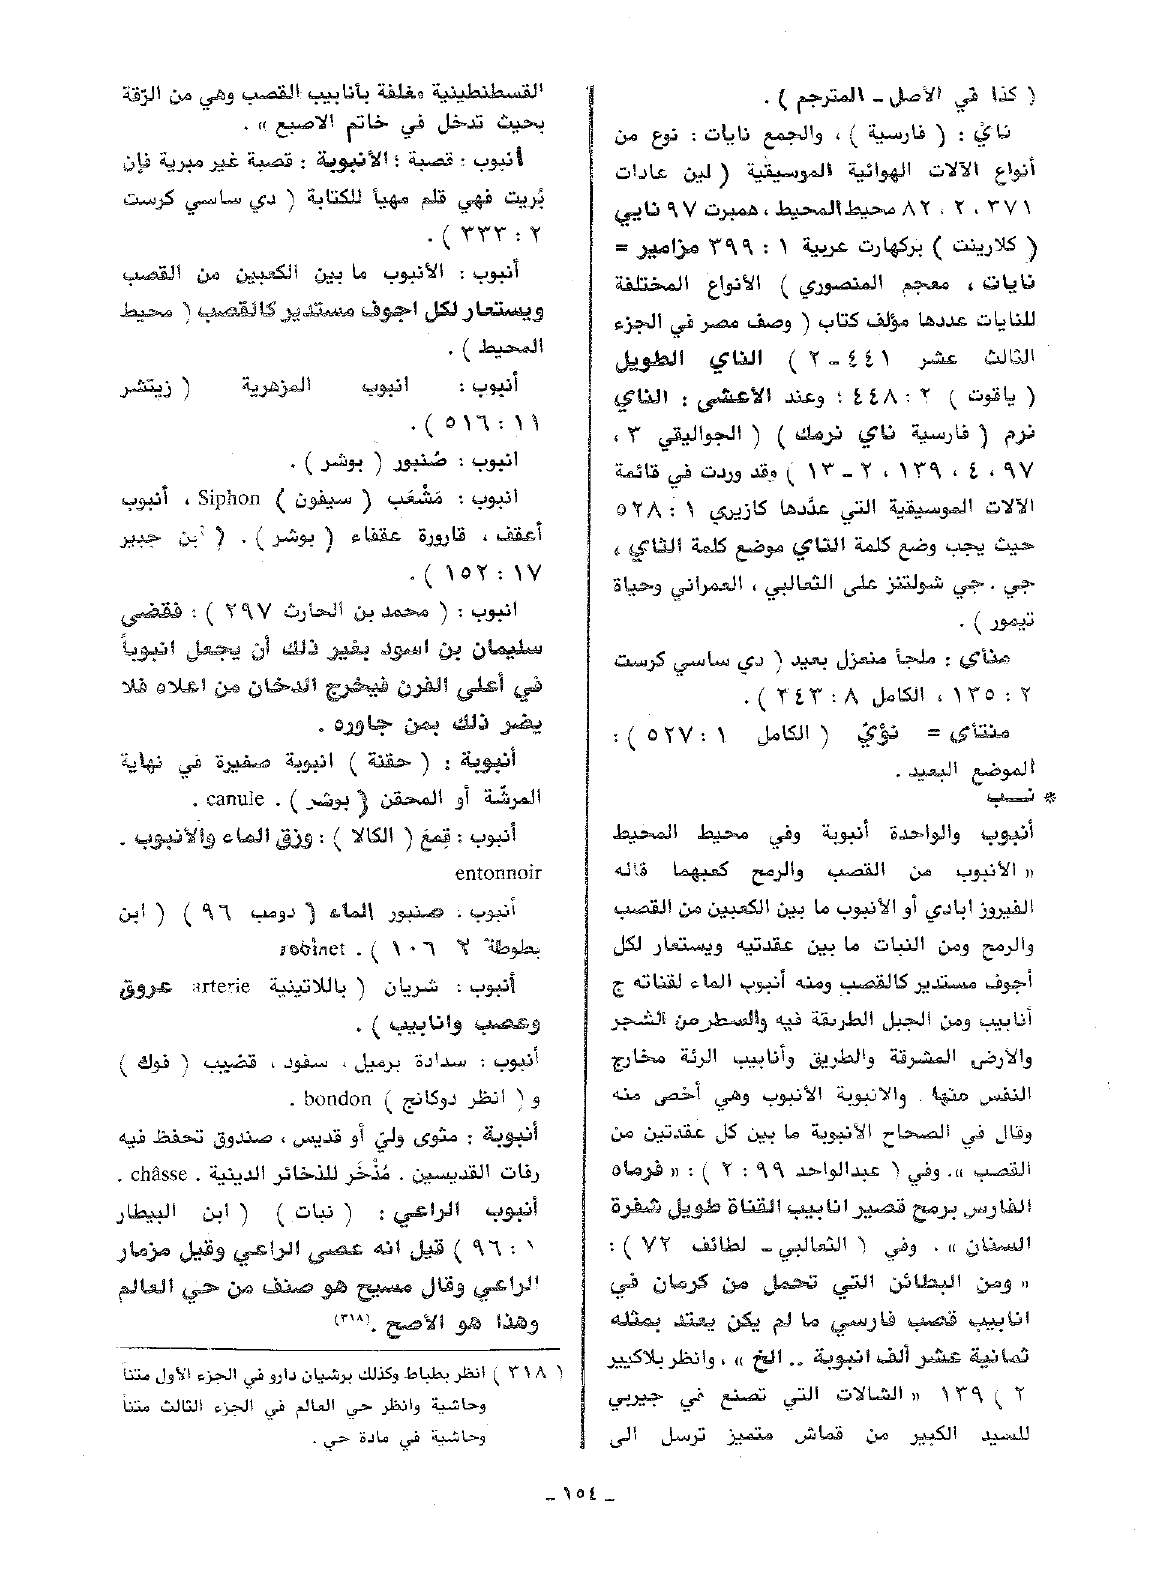 ( كذا في الأصل ـ المترجم ) .
نايٌ : ( فارسية ) ، والجمع نايات : نوع من
أنواع الآلات الهوائية الموسيقية ( لين عادات
٣٧١ ، ٢ ، ٨٢ محيط المحيط ، همبرت ٩٧ نايي
( كلارينت ) بركهارت عربية ١ : ٣٩٩ مزامير =
نايات ، معجم المنصوري ) الأنواع المختلفة
للنايات عددها مؤلف كتاب ( وصف مصر في الجزء
الثالث عشر ٤٤١ ـ ٢ ) الناي الطويل
( ياقوت ) ٢ : ٤٤٨ ؛ وعند الأعشى : الناي
نرم ( فارسية ناي نرمك ) ( الجواليقي ٣ ،
٩٧ ، ٤ ، ١٣٩ ، ٢ ـ ١٣ ) وقد وردت في قائمة
الآلات الموسيقية التي عدّدها كازيري ١ : ٥٢٨
حيث يجب وضع كلمة الناي موضع كلمة الناي ،
جي . جي شولتنز على الثعالبي ، العمراني وحياة
تيمور ) .
منأى : ملجأ منعزل بعيد ( دي ساسي كرست
٢ : ١٣٥ ، الكامل ٨ : ٢٤٣ ) .
منتأى = نؤيٌ ( الكامل ١ : ٥٢٧ ) :
الموضع البعيد .
* نـــب
أنبوب والواحدة أنبوبة وفي محيط المحيط
« الأنبوب من القصب والرمح كعبهما قاله
الفيروز ابادي أو الأنبوب ما بين الكعبين من القصب
والرمح ومن النبات ما بين عقدتيه ويستعار لكل
أجوف مستدير كالقصب ومنه أنبوب الماء لقناته ج
أنابيب ومن الجبل الطريقة فيه والسطر من الشجر
والأرض المشرقة والطريق وأنابيب الرئة مخارج
النفس منها . والانبوبة الأنبوب وهي أخص منه
وقال في الصحاح الأنبوبة ما بين كل عقدتين من
القصب » . وفي ( عبدالواحد ٩٩ : ٢ ) : « فرماه
الفارس برمح قصير انابيب القناة طويل شفرة
السنان » . وفي ( الثعالبي ـ لطائف ٧٢ ) :
« ومن البطائن التي تحمل من كرمان في
انابيب قصب فارسي ما لم يكن يعتد بمثله
ثمانية عشر ألف انبوبة .. الخ » ، وانظر بلاكيير
٢ ) ١٣٩ « الشالات التي تصنع في جيربي
للسيد الكبير من قماش متميز ترسل الى
القسطنطينية مغلفة بأنابيب القصب وهي من الرّقة
بحيث تدخل في خاتم الاصبع » .
أنبوب : قصبة ؛ الأنبوبة : قصبة غير مبرية فإن
بُريت فهي قلم مهيأ للكتابة ( دي ساسي كرست
٢ : ٣٣٣ ) .
أنبوب : الأنبوب ما بين الكعبين من القصب
ويستعار لكل اجوف مستدير كالقصب ( محيط
المحيط ) .
أنبوب : انبوب المزهرية ( زيتشر
١١ : ٥١٦ ) .
انبوب : صُنبور ( بوشر ) .
انبوب : مَشْعَب ( سيفون ) Siphon ، أنبوب
أعقف ، قارورة عقفاء ( بوشر ) . ( ابن جبير
١٧ : ١٥٢ ) .
انبوب : ( محمد بن الحارث ٢٩٧ ) : فقضى
سليمان بن اسود بغير ذلك أن يجعل انبوباً
في أعلى الفرن فيخرج الدخان من اعلاه فلا
يضر ذلك بمن جاوره .
أنبوبة : ( حقنة ) انبوبة صغيرة في نهاية
المرشّة أو المحقن ( بوشر ) . canule .
أنبوب : قِمعَ ( الكالا ) : وزق الماء والأنبوب .
entonnoir
أنبوب : صنبور الماء ( دومب ٩٦ ) ( ابن
بطوطة ٢ ١٠٦ ) . robinet
أنبوب : شريان ( باللاتينية arterie عروق
وعصب وانابيب ) .
أنبوب : سدادة برميل ، سفود ، قضيب ( فوك )
و ( انظر دوكانج ) bondon .
أنبوبة : مثوى وليّ أو قديس ، صندوق تحفظ فيه
رفات القديسين . مُذْخَر للذخائر الدينية . châsse .
أنبوب الراعي : ( نبات ) ( ابن البيطار
١ : ٩٦ ) قيل انه عصى الراعي وقيل مزمار
الراعي وقال مسيح هو صنف من حي العالم
وهذا هو الأصح .(٣١٨)
( ٣١٨ ) انظر بطباط وكذلك برشيان دارو في الجزء الأول متناً
وحاشية وانظر حي العالم في الجزء الثالث متناً
وحاشية في مادة حي .
ـ ١٥٤ ـ